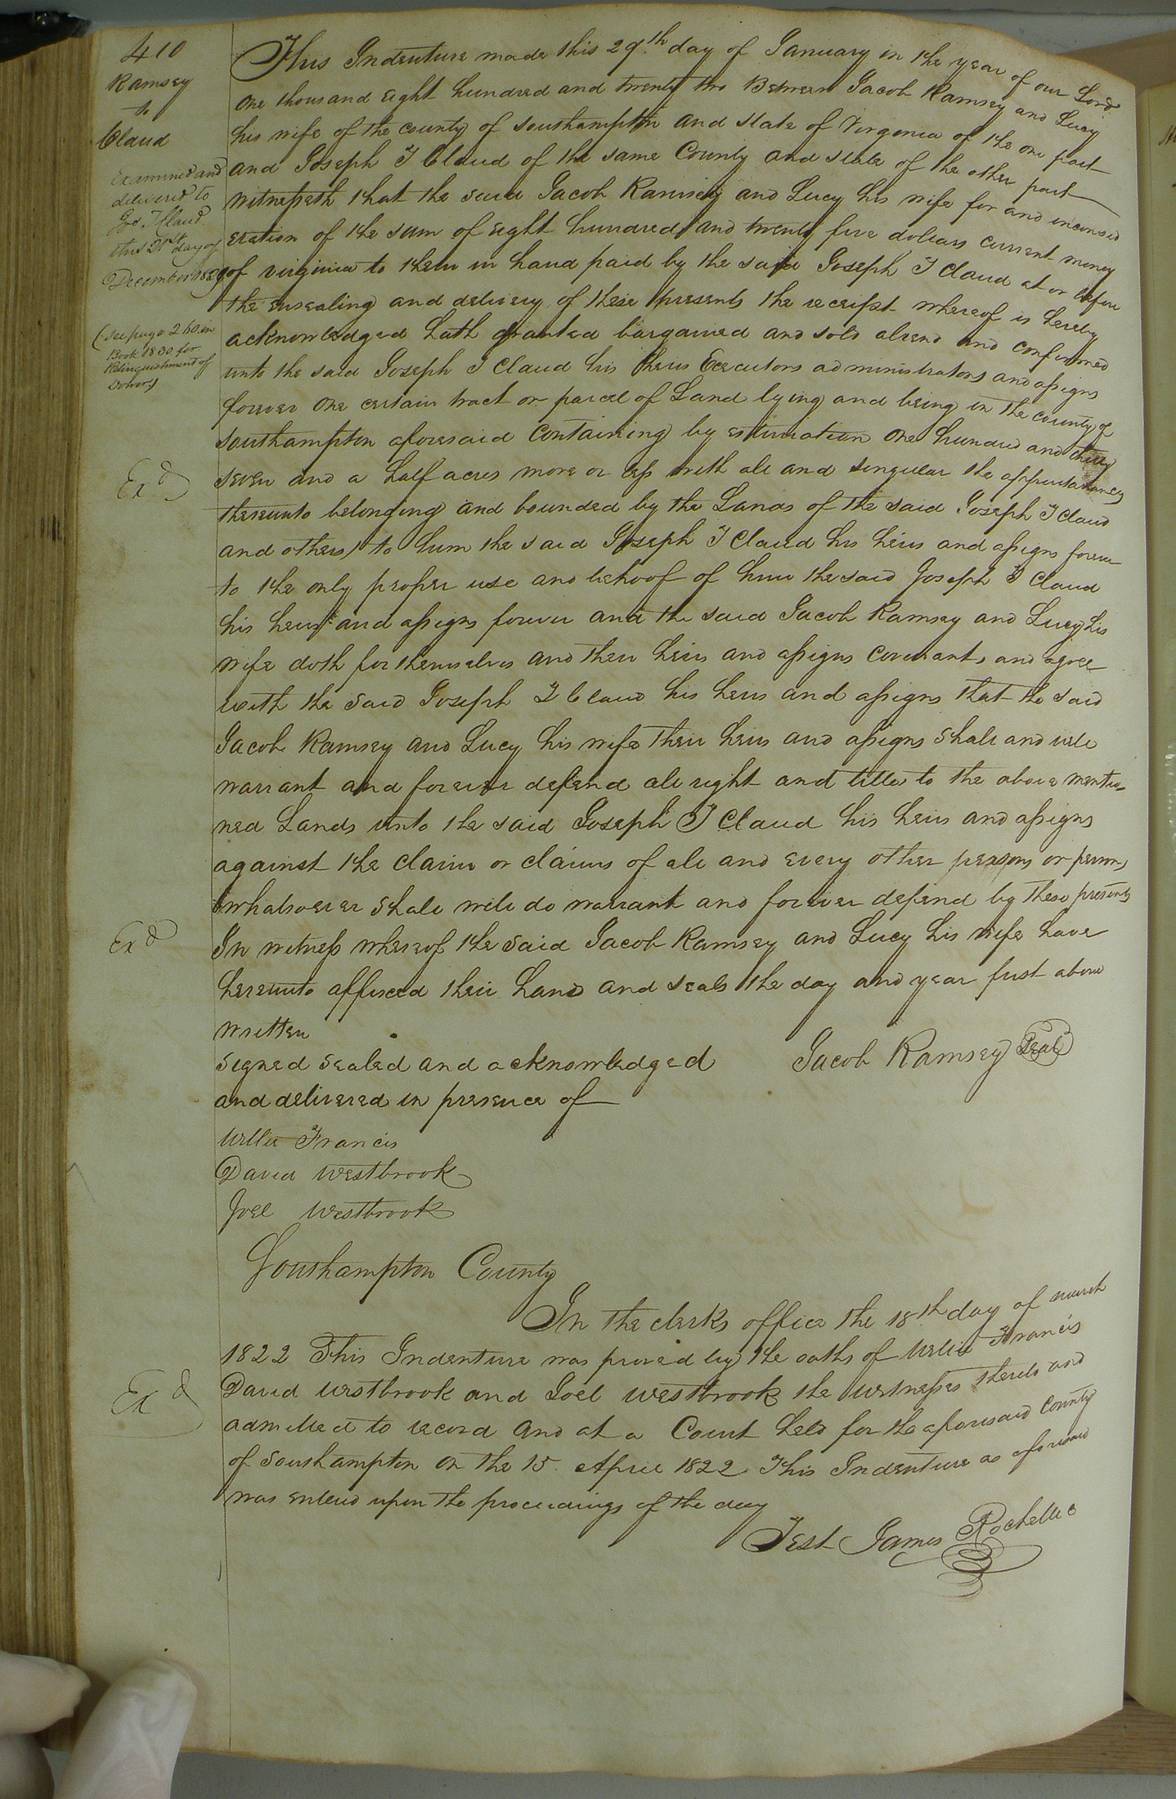 410
Ramsey
to
Claud
Examined and
delivered to
Jos. T Claud
this 21st day of
December 1829
(See page 260 in
Book 1830 for
Relinquishment of
Dower)
Exd
Exd
Exd
This Indenture made this 29th day of January in the year of our Lord
one thousand eight hundred and twenty two Between Jacob Ramsey and Lucy
his wife of the county of Southampton and state of Virginia of the one part
and Joseph T Claud of the same County and state of the other part
witnesseth that the said Jacob Ramsey and Lucy his wife for and inconsid
eration of the sum of eight hundred and twenty five dollars current money
of virginia to them in hand paid by the said Joseph T Claud at or before
the ensealing and delivery of these presents the receipt whereof is hereby
acknowledged hath granted bargained and sold aliend and confirmed
unto the said Joseph T Claud his Heirs Executors administrators and assigns
forever one certain tract or parcel of Land lying and being in the county of
Southampton aforesaid containing by estimation one hundred and thirty
seven and a half acres more or less with all and singular the appurtanances
thereunto belonging and bounded by the Lands of the said Joseph T Claud
and others, to him the said Joseph T Claud his heirs and assigns forever
to the only proper use and behoof of him the said Joseph T Claud
his heirs and assigns forever and the said Jacob Ramsey and Lucy his
wife doth for themselves and their heirs and assigns covenant, and agree
with the said Joseph T Claud his heirs and assigns that the said
Jacob Ramsey and Lucy his wife their heirs and assigns shall and will
warrant and forever defend all right and title to the above mentio-
ned Lands unto the said Joseph T Claud his heirs and assigns
against the claim or claims of all and every other person or persons
whatsoever shall will do warrant and forever defend by these presents
In witness whereof the said Jacob Ramsey and Lucy his wife have
hereunto affixed their hand and seals the day and year first above
written
Signed sealed and acknowledged Jacob Ramsey Seal
and delivered in presence of
Willie Francis
David Westbrook
Joel Westbrook
Southampton County
In the clerks office the 18th day of march
1822 This Indenture was proved by the oaths of Willie Francis
David Westbrook and Joel Westbrook the witnesses thereto and
admitted to record and at a Court held for the aforesaid County
of Southampton on the 15 April 1822 This Indenture as aforesaid
was entered upon the proceedings of the day
Test James Rochelle c